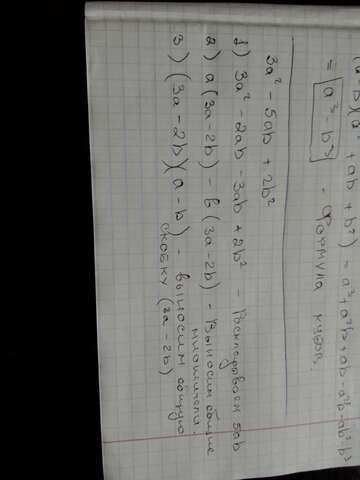 a b)(a² + ab + b²) = a³ + a²b + ab² - a²b - ab² - b³
= a³ - b³ - формула кубов.
3a² - 5ab + 2b²
1) 3a² - 2ab - 3ab + 2b² - Раскладываем 5ab
2) a(3a - 2b) - b(3a - 2b) - Выносим общие
множители.
3) (3a - 2b)(a - b) - выносим общую
скобку (3a - 2b)